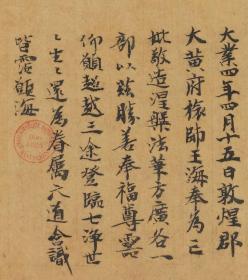 大業四年四月十五日敦煌郡
大黄府旅師王海奉為亡
妣敬造涅槃法華方廣各一
部以兹勝善奉福尊靈
仰願超越三途登臨七淨世
〻生〻還為眷屬六道含識
皆霑願海